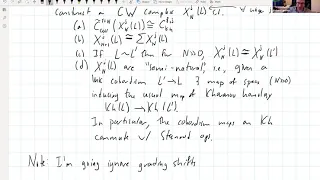 Construct a CW complex X_N^j(L)
(a) C_{cell}^{*+N}(X_N^j(L)) ≅ C_{Kh}^{*,j}
(b) X_{N+1}^j(L) ≅ ΣX_N^j(L)
(c) If L~L' then for N>>0, X_N^j(L) ≃ X_N^j(L')
(d) X_N^j(L) are "semi-natural", i.e., given a
link cobordism L'→L ∃ map of spaces (N>>0)
inducing the usual map of Khovanov homology
Kh(L) → Kh(L').
In particular, the cobordism maps on Kh
commute w/ Steenrod ops.
Note: I'm going ignore grading shifts